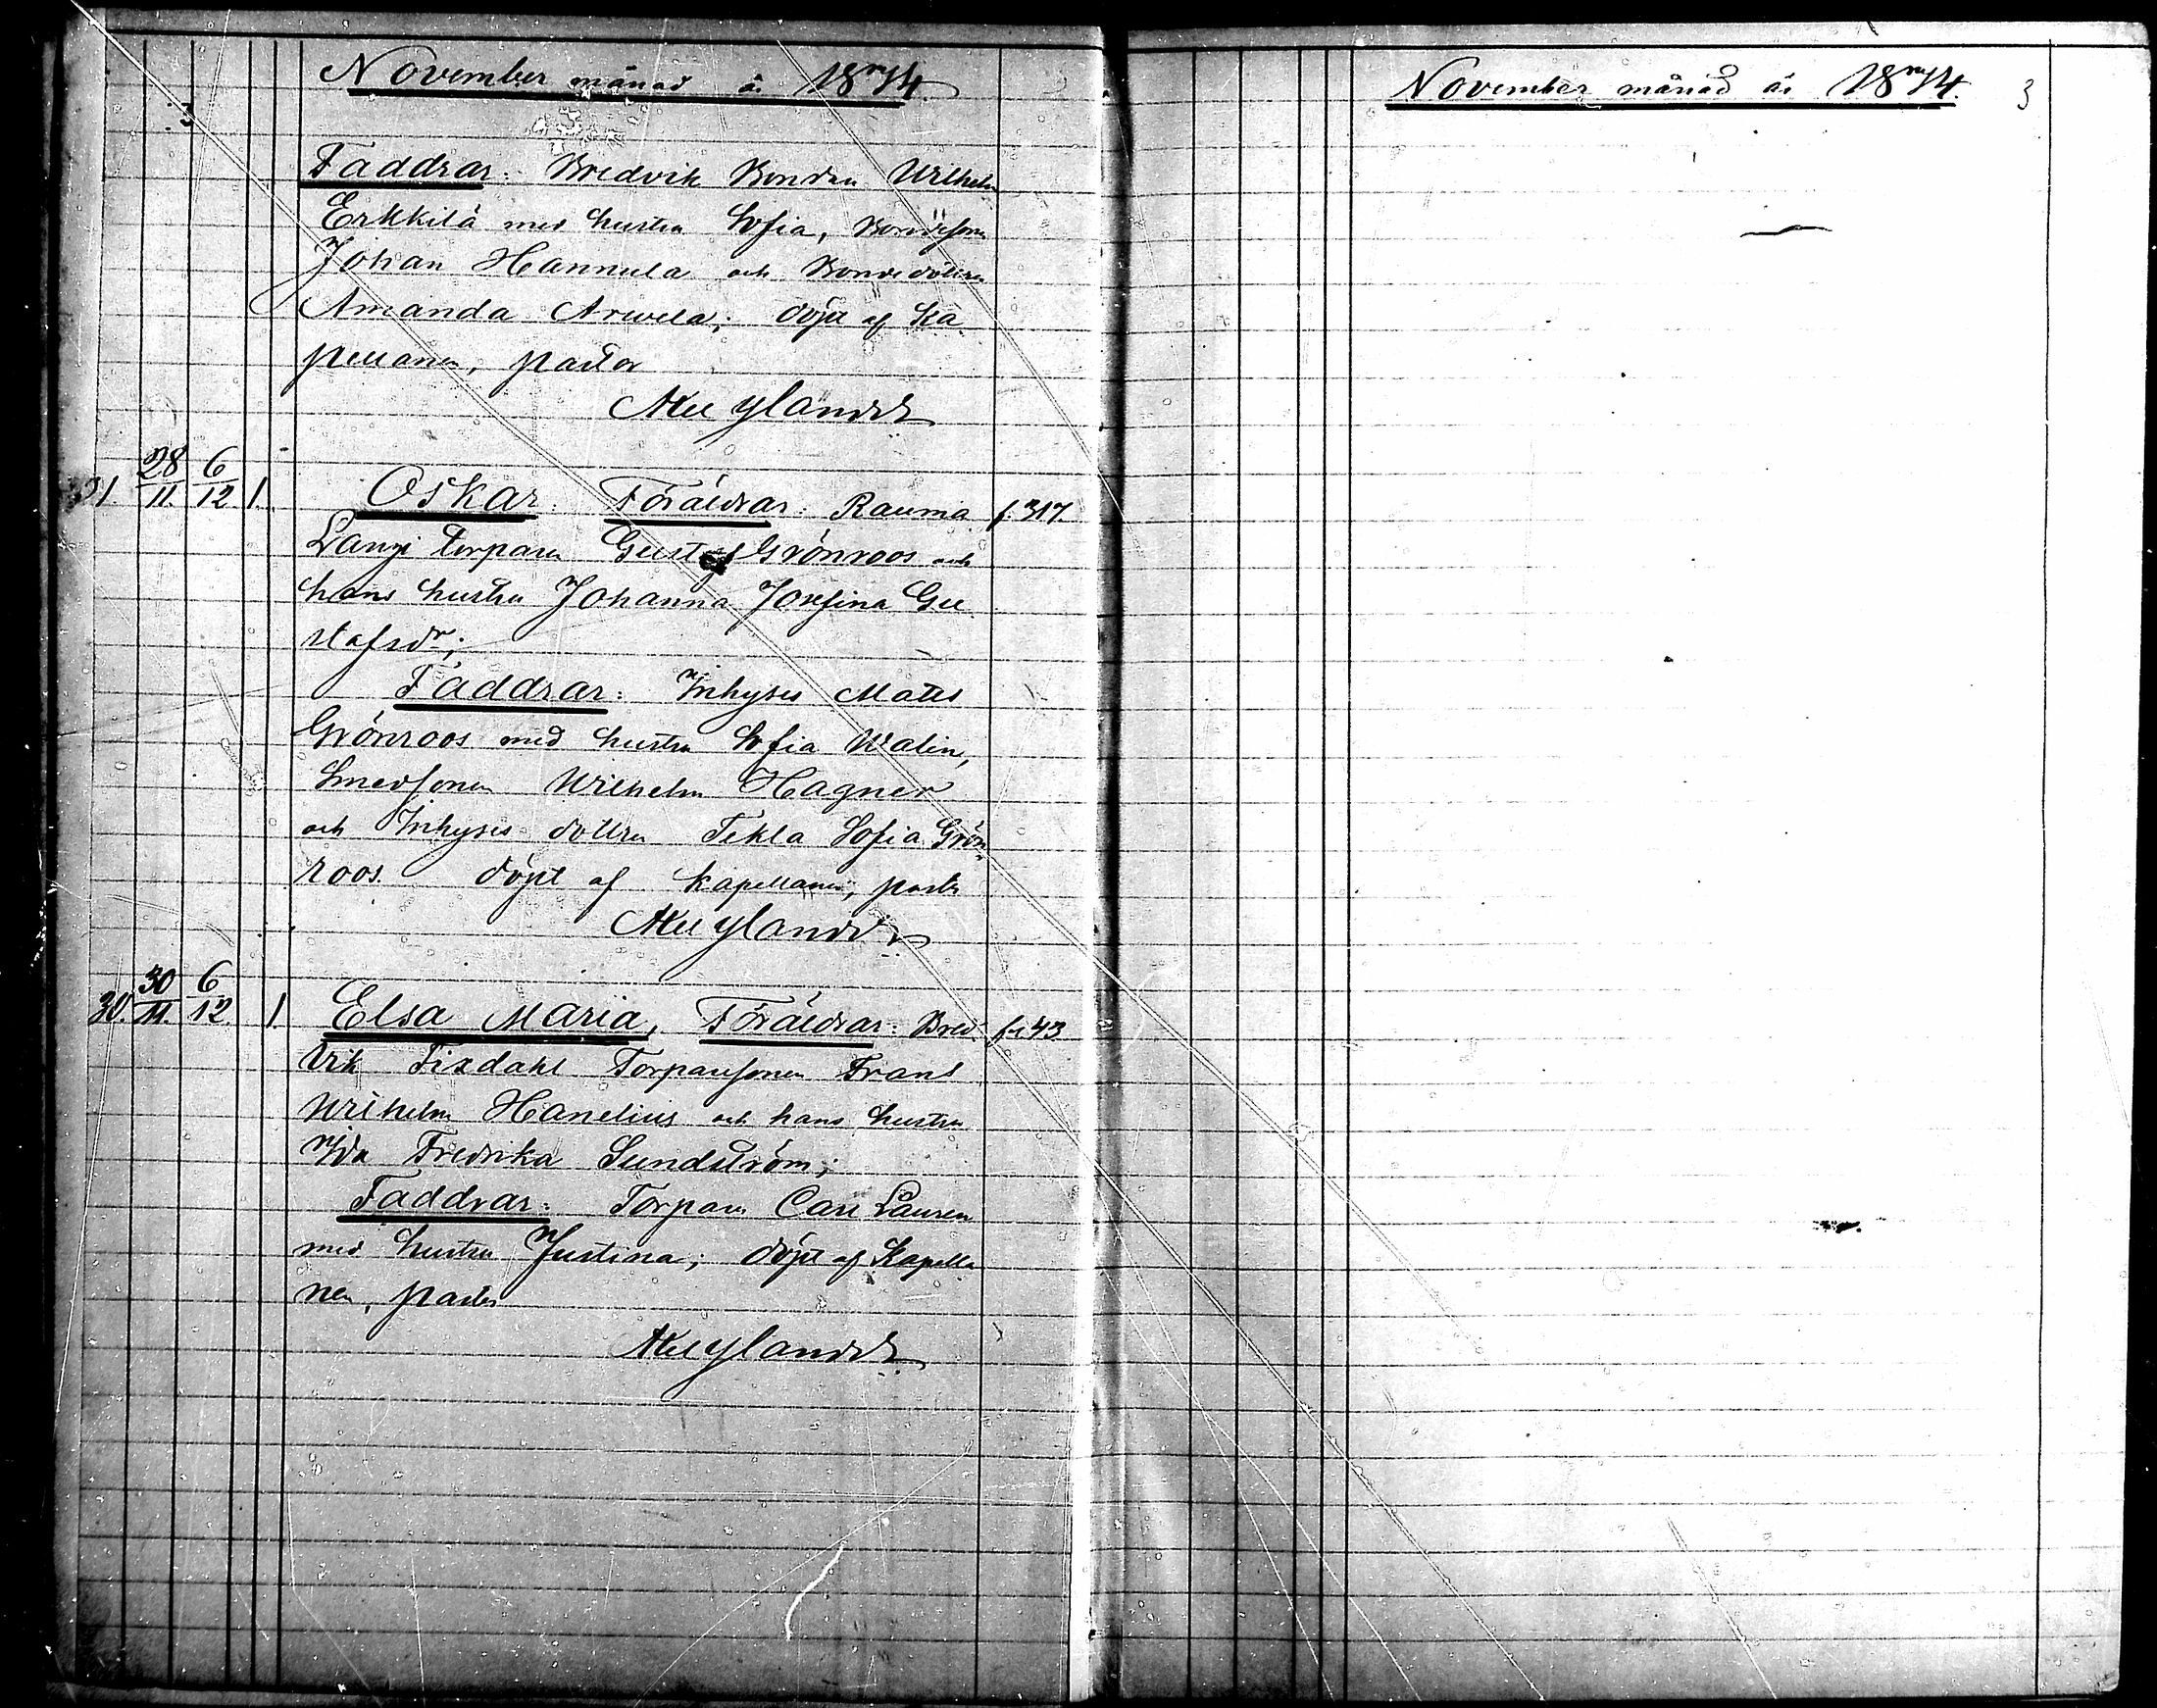 November månad år 1874.
3
Faddrar: Bredvik Bonden Wilhelm
Erkkilä med hustru Sofia, Bondesonen
Johan Hannula och Bondedottren
Amanda Arvela; döpt af Ka
pellanen, pastor
Nylander
28 6
11. 12. 1.
Oskar. Föräldrar: Rauma f. 317.
Langi torparen Gustaf Grönroos och
hans hustru Johanna Josefina Gu
stafsdr;
Faddrar: Inhyses Matts
Grönroos med hustru Sofia Walin,
Smedsonen Wilhelm Hagner
och Inhyses dottren Tekla Sofia Grön
roos. döpt af kapellanen, pastor
Nylander
30 6
30. 11. 12. 1.
Elsa Maria, Föräldrar: Bred f. 43
vik Fixdahl Torparesonen Frans
Wilhelm Hanelius och hans hustru
Ida Fredrika Sundström;
Faddrar: Torparen Carl Lauren
med hustru Justina; döpt af Kapella
nen, pastor
Nylander
November månad år 1874. 3